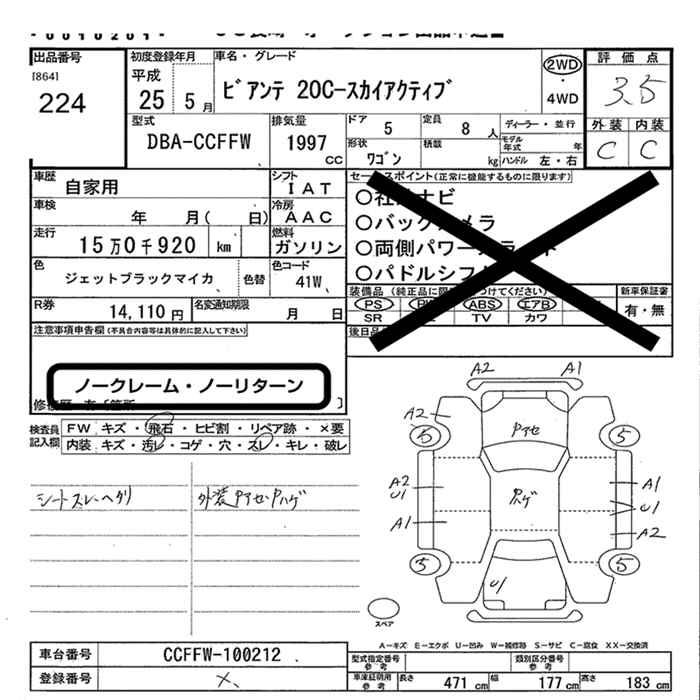 出品番号
[864]
224
初度登録年月
平成
25 5月
車名・グレード
ビアンテ 20C-スカイアクティブ
2WD
・
4WD
評価点
3.5
外装 内装
C C
型式
DBA-CCFFW
排気量
1997
CC
ドア 5
定員 8 人
ディーラー・並行
形状 ワゴン
積載 kg
モデル年式 年
ハンドル 左・右
車歴 自家用
シフト IAT
車検 年 月( 日)
冷房 AAC
走行 15万0千920 km
燃料 ガソリン
色 ジェットブラックマイカ 色替
色コード 41W
R券 14,110円
名変通知期限 月 日
セールスポイント(正常に機能するものに限ります)
○社外ナビ
○バックカメラ
○両側パワー
○パドルシフ
装備品 (純正品に限
つけてください)
新車保証書
PS ABS エアB
有・無
SR TV カワ
後日品
注意事項申告欄(不具合内容等は具体的に記入して下さい)
ノークレーム・ノーリターン
検査員記入欄
FW キズ・飛石・ヒビ割・リペア跡・×要
内装 キズ・汚レ・コゲ・穴・スレ・キレ・破レ
シートスレ・ヘタリ
外装Pアセ・Pハゲ
A2 A1
A2
Pアセ
5 5
A2
U1
Pハゲ
A1
U1
A1
A2
5 5
U1
スペア
A-キズ E-エクボ U-凹み W-補修跡 S-サビ C-腐食 XX-交換済
車台番号 CCFFW-100212
登録番号 ×
型式指定番号 参考
類別区分番号 参考
車庫証明用 参考
長さ 471 cm 幅 177 cm 高さ 183 cm